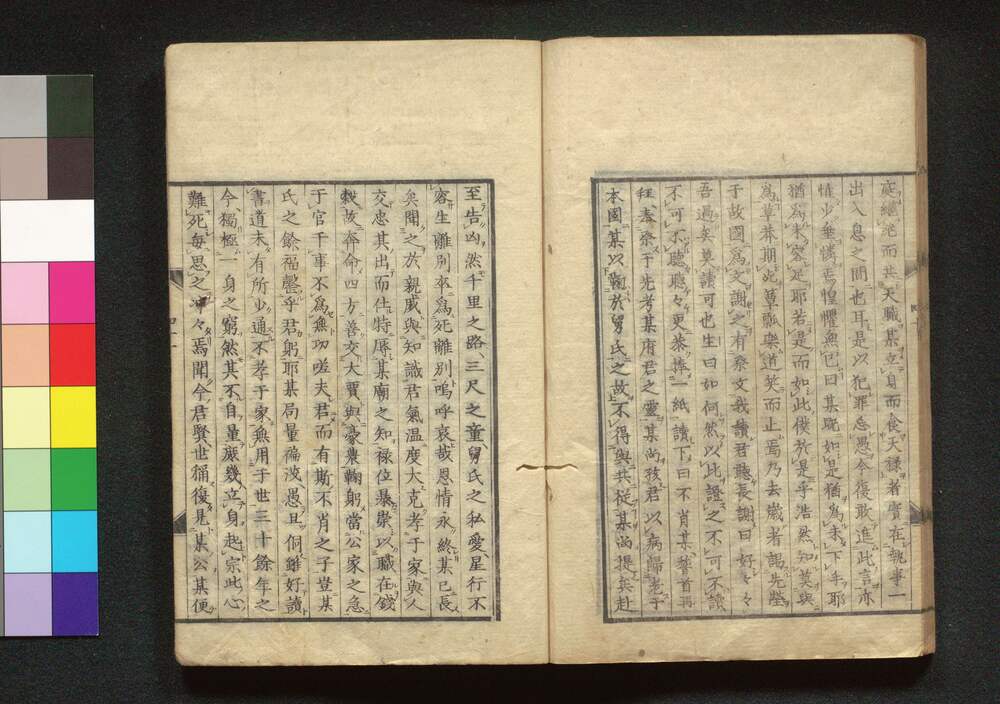 庭継絶而共天職某立身而食天禄者実在執事一
出入息之間也耳是以犯罪忘愚今復敢進此言亦
情少垂憐焉惶懼無已曰某既如是猶為未下手耶
猶為未容足耶若是而如此僕於是乎浩然知其與
為草莽期此簞瓢楽道笑而止焉乃去歳者謁先塋
于故国為文謝之有祭文我読君聴長謝曰好々々
吾過矣莫読可也生曰如何然以比證之不可不読
不可不聴聴々更恭捧一紙読下曰不肖某拳首再
拝奏祭于先考某府君之霊某尚孩君以病帰老于
本国某以留於舅氏之故不得與共従某尚提矣赴
至告凶然千里之路三尺之童舅氏之私愛星行不
容生離別卒為死離別嗚呼哀哉恩情永終某已長
矣聞之於親戚與知識君気温度大克孝于家與人
交忠其出而仕特辱某廟之知禄位崇以職在銭
穀故奔命四方善交大賈與豪農鞠躬当公家之急
于官千事不為無功嗟夫君而有斯不肖之子豈某
氏之餘福罄乎君躬耶某局量褊浅愚且侗雖好読
書道未有所少通不孝于家無用于世三十餘年之
今獨極一身之窮然其不自量庶幾立身起宗此心
難死毎思之沖々焉聞今君賢世稱復見某公某便